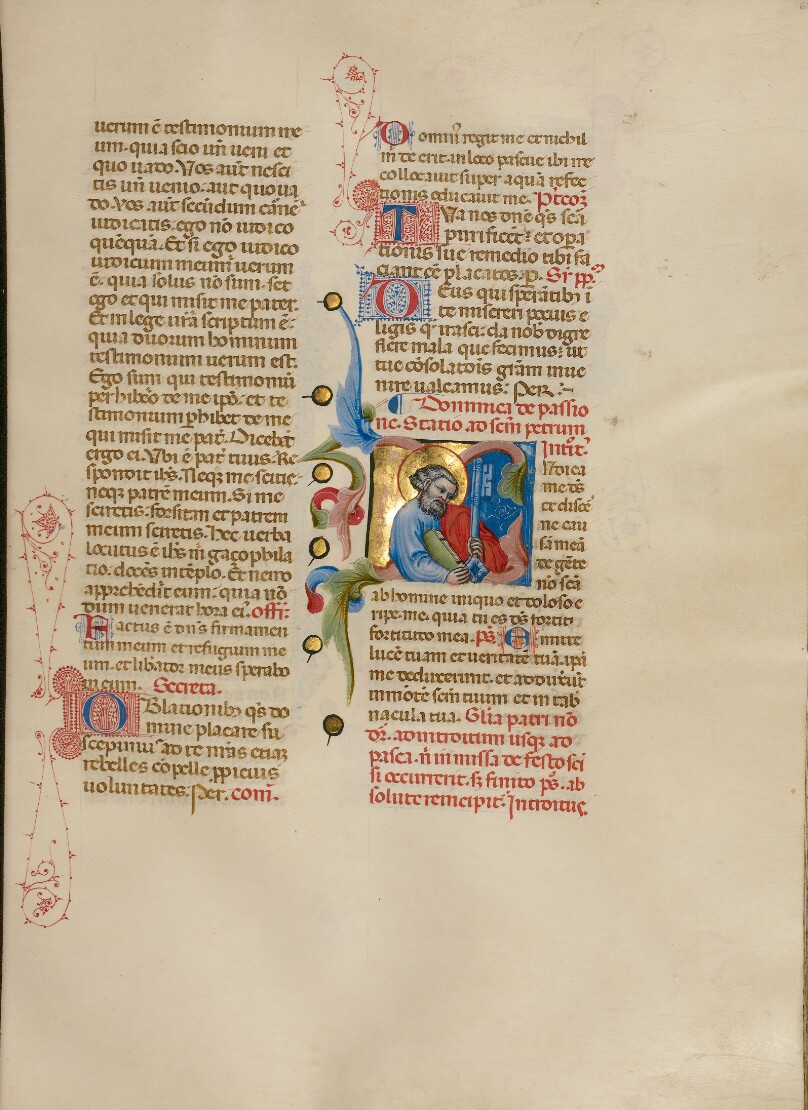 uerum ē testimonium me
um. quia scio uñ ueni et
quo uado. Vos aut̄ nesci
tis uñ uenio. aut quo ua
do. Vos aut̄ secūdum carnē
iudicatis. ego nō iudico
quēquā. Et si ego iudico
iudicium meum uerum
ē. quia solus nō sum. set
ego et qui misit me pater.
Et in lege ur̄a scriptum ē.
quia duorum hominum
testimonium uerum est.
Ego sum qui testimoniū
perhibeo de me ip̄o. et te
stimonium p̄hibet de me
qui misit me pat̄. Dicebāt
ergo ei. Vbi ē pat̄ tuus. Re
spondit ih̄s. Neq; me scitis
neq; patrē meum. Si me
sciretis. forsitan et patrem
meum sciretis. Hec uerba
locutus ē ih̄s in gaçophila
tio. docēs in tēplo. Et nemo
apprehēdit eum. quia nō
dum uenerat hora ei. offr̄.
Factus ē dn̄s firmamen
tum meum et refugium me
um. et libator meus sperabo
in eum. Secreta.
OBlationib; q̄s do
mine placare su
sceptis. ad te nr̄as etiaz
rebelles cōpelle ppicius
uoluntates. Per. com̄.
Domin̄ regit me et nichil
m̄ de erit. in loco pascue ibi me
collocauit super aquā refec
tionis educauit me. Pt̄coz
TVa nos dn̄e q̄s sc̄a
purificēt. et opa
tionis sue remedio tibi fa
ciant eē placatos. P. Sr̄ pp̄.
DEus qui sperātib; i
te misereri pocius e
ligis q̄ irasci. da nob̄ digne
flere mala que fecimus. ut
tue cōsolatōis grām inue
nire ualeamus. Per.
Dominica de passio
ne. Statio ad sc̄m petrum
Introit̄.
Iudica
me d̄s
et discē
ne cau
sā meā
de gēte
nō sc̄a
ab homine iniquo et doloso e
ripe me. quia tu es d̄s forti
fortitudo mea. p̄s. Emitte
lucē tuam et ueritatē tuā. ip̄a
me deduxerunt. et adduxer̄t
in mōte sc̄m tuum et in tab
nacula tua. Glīa patri nō
dr̄. ad introitum usq; ad
pasca. n̄ in missa de festo sci
si occurrerit. s; finito p̄s. ab
solute reincipit̄. Introitus.